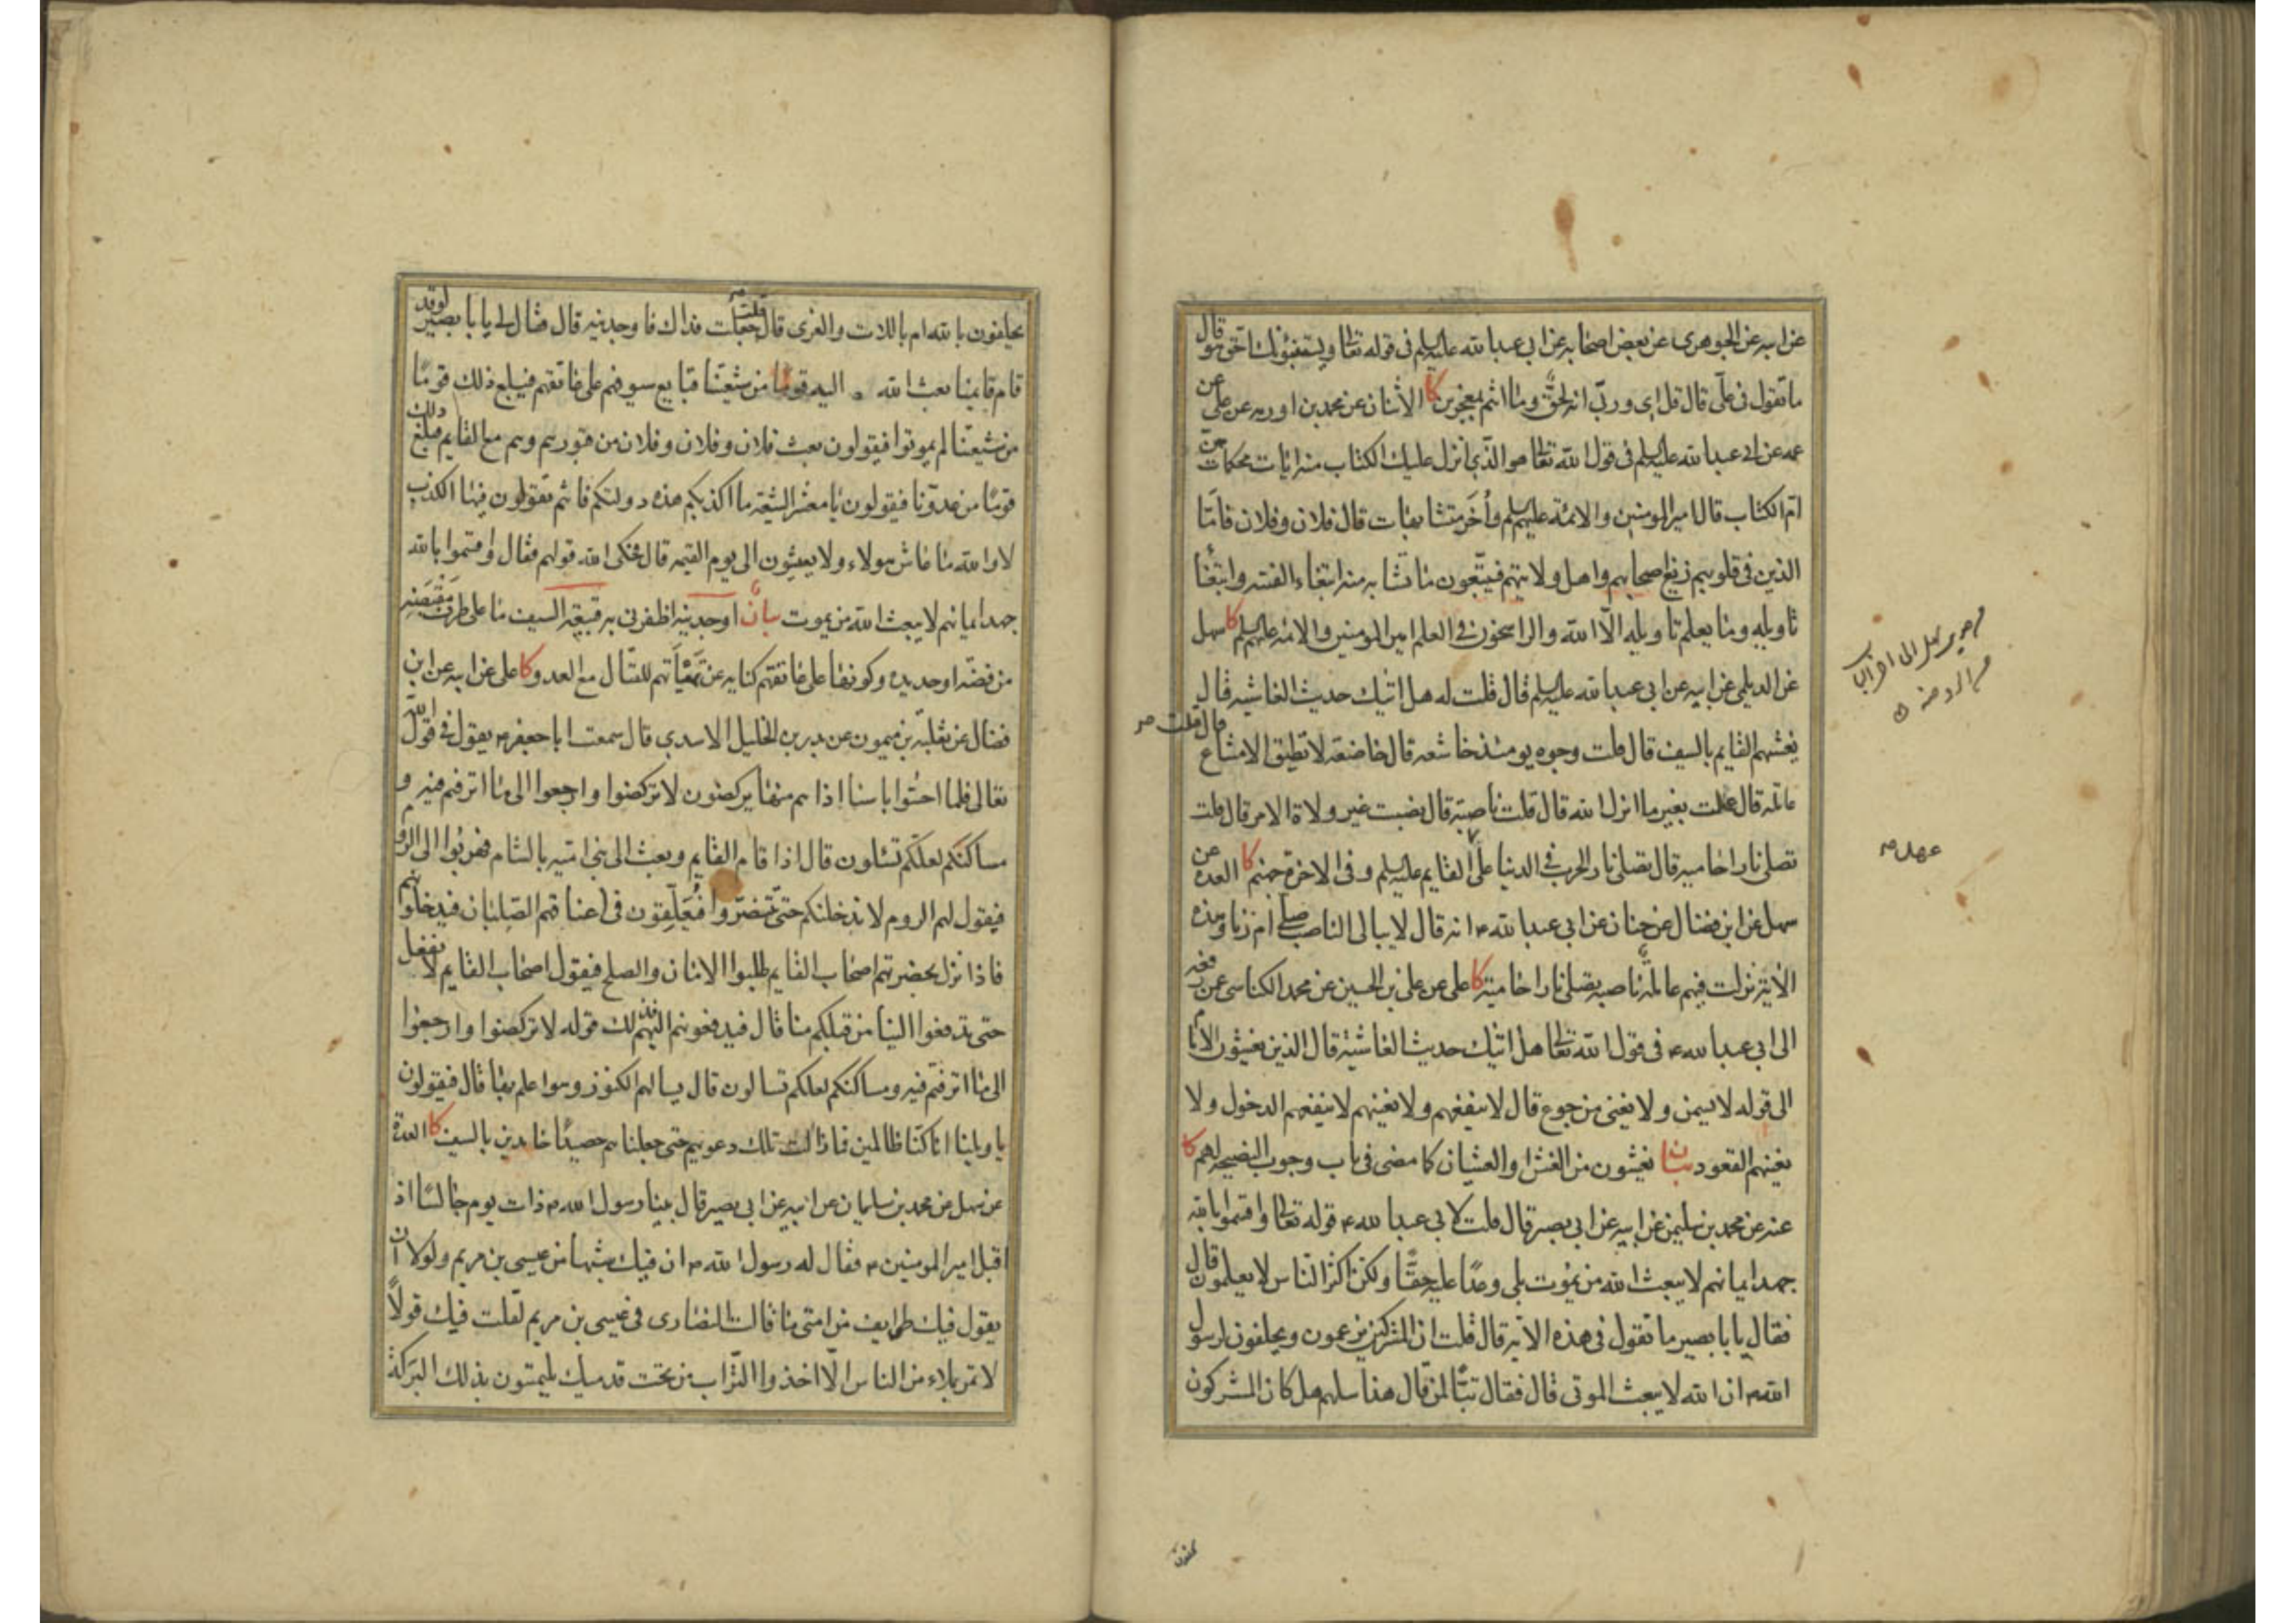 عن ابيه عن الجوهرى عن بعض اصحابه عن ابي عبد الله عليه السلم فى قوله تعالى ويستنبؤنك احق هو قال
ما تقول فى علىّ قال قل اى وربّى انه لحقّ وما انتم بمعجزين كا الاثنان عن محمد بن اورمه عن على عن
عمه عن ابى عبد الله عليه السلم فى قول الله تعالى هو الذى انزل عليك الكتاب منه ايات محكمات هنّ
امّ الكتاب قال امير المومنين والائمة عليهم السلم وأخر متشابهات قال فلان وفلان فامّا
الذين فى قلوبهم زيغ اصحابهم واهل ولايتهم فيتّبعون ما تشابه منه ابتغاء الفتنه وابتغاء
تاويله وما يعلم تاويله الّا الله والراسخون فى العلم امير المومنين والائمه عليهم السلم كا سهل
عن الديلمى عن ابيه عن ابى عبد الله عليه السلم قال قلت له هل اتيك حديث الغاشيه قال
يغشهم القايم بالسيف قال قلت وجوه يومئذ خاشعه قال خاضعه لا تطيق الامتناع قال قلت
عاملة قال عملت بغير ما انزل الله قال قلت ناصبة قال نصبت غير ولاة الامر قال قلت
تصلى نارا حاميه قال تصلى نار الحرب فى الدنيا على القايم عليه السلم وفى الاخرة جهنم كا العدة عن
سهل عن ابن فضال عن حنان عن ابى عبد الله انه قال لا يبالى الناصب صلى ام زنا وهذه
الاية نزلت فيهم عاملة ناصبه تصلى نارا حامية كا على عن على بن الحسين عن محمد الكناسى عمن رفعه
الى ابى عبد الله فى قول الله تعالى هل اتيك حديث الغاشية قال الذين يغشون الامام
الى قوله لا يسمن ولا يغنى من جوع قال لا ينفعهم ولا يغنيهم لا ينفعهم الدخول ولا
يغنيهم القعود بيان يغشون من الغش او الغشيان كما مضى فى باب وجوب النصيحة لهم كا
عنه عن محمد بن سليمن عن ابيه عن ابى بصير قال قلت لابى عبد الله قوله تعالى واقسموا بالله
جهد ايمانهم لا يبعث الله من يموت بلى وعدًا عليه حقًّا ولكن اكثر الناس لا يعلمون قال
فقال يا با بصير ما تقول فى هذه الاية قال قلت ان المشركين يزعمون ويحلفون لرسول
الله ان الله لا يبعث الموتى قال فقال تبًّا لمن قال هذا سلهم هل كان المشركون
عهد
يحلفون بالله ام باللات والعزى قال قلت جعلت فداك فاوجدنيه قال فقال لى يا با بصير لو قد
قام قايمنا بعث الله اليه قومًا من شيعتنا قبايع سيوفهم على عاتقهم فيبلغ ذلك قومًا
من شيعتنا لم يموتوا فيقولون بعث فلان وفلان وفلان من قبورهم وهم مع القايم فيبلغ ذلك
قومًا من عدوّنا فيقولون يا معشر الشيعة ما اكذبكم هذه دولتكم فانتم تقولون فيها الكذب
لا والله ما عاش هولاء ولا يعيشون الى يوم القيمه قال فحكى الله قولهم فقال واقسموا بالله
جهد ايمانهم لا يبعث الله من يموت بيان اوجدنيه اظفرنى به قبيعة السيف ما على طرف مقبضه
من فضّه او حديده وكونها على عاتقهم كنايه عن تهيّاتهم للقتال مع العدو كا على عن ابيه عن ابن
فضال عن ثعلبة بن ميمون عن بدر بن الخليل الاسدى قال سمعت ابا جعفر يقول فى قول الله
تعالى فلما احسّوا باسنا اذا هم منها يركضون لا تركضوا وارجعوا الى ما اترفتم فيه و
مساكنكم لعلكم تسئلون قال اذا قام القايم وبعث الى بنى اميه بالشام فهربوا الى الروم
فيقول لهم الروم لا ندخلنكم حتى تتنصّروا فيعلّقون فى اعناقهم الصّلبان فيدخلونهم
فاذا نزل بحضرتهم اصحاب القايم طلبوا الامان والصلح فيقول اصحاب القايم لا نفعل
حتى تدفعوا الينا من قبلكم منا قال فيدفعونهم اليهم فذلك قوله لا تركضوا وارجعوا
الى ما اترفتم فيه ومساكنكم لعلكم تسالون قال يسالهم الكنوز وهوا علم بها قال فيقولون
يا ويلنا انا كنّا ظالمين فما زالت تلك دعويهم حتى جعلناهم حصيدًا خامدين بالسيف كا العدة
عن سهل عن محمد بن سليمان عن ابيه عن ابى بصير قال بينا رسول الله ذات يوم جالسًا اذ
اقبل امير المومنين فقال له رسول الله ان فيك شبها من عيسى بن مريم ولولا ان
يقول فيك طوايف من امتى ما قالت النصارى فى عيسى بن مريم لقلت فيك قولاً
لا تمر بملاء من الناس الّا اخذوا التراب من تحت قدميك يلتمسون بذلك البركة